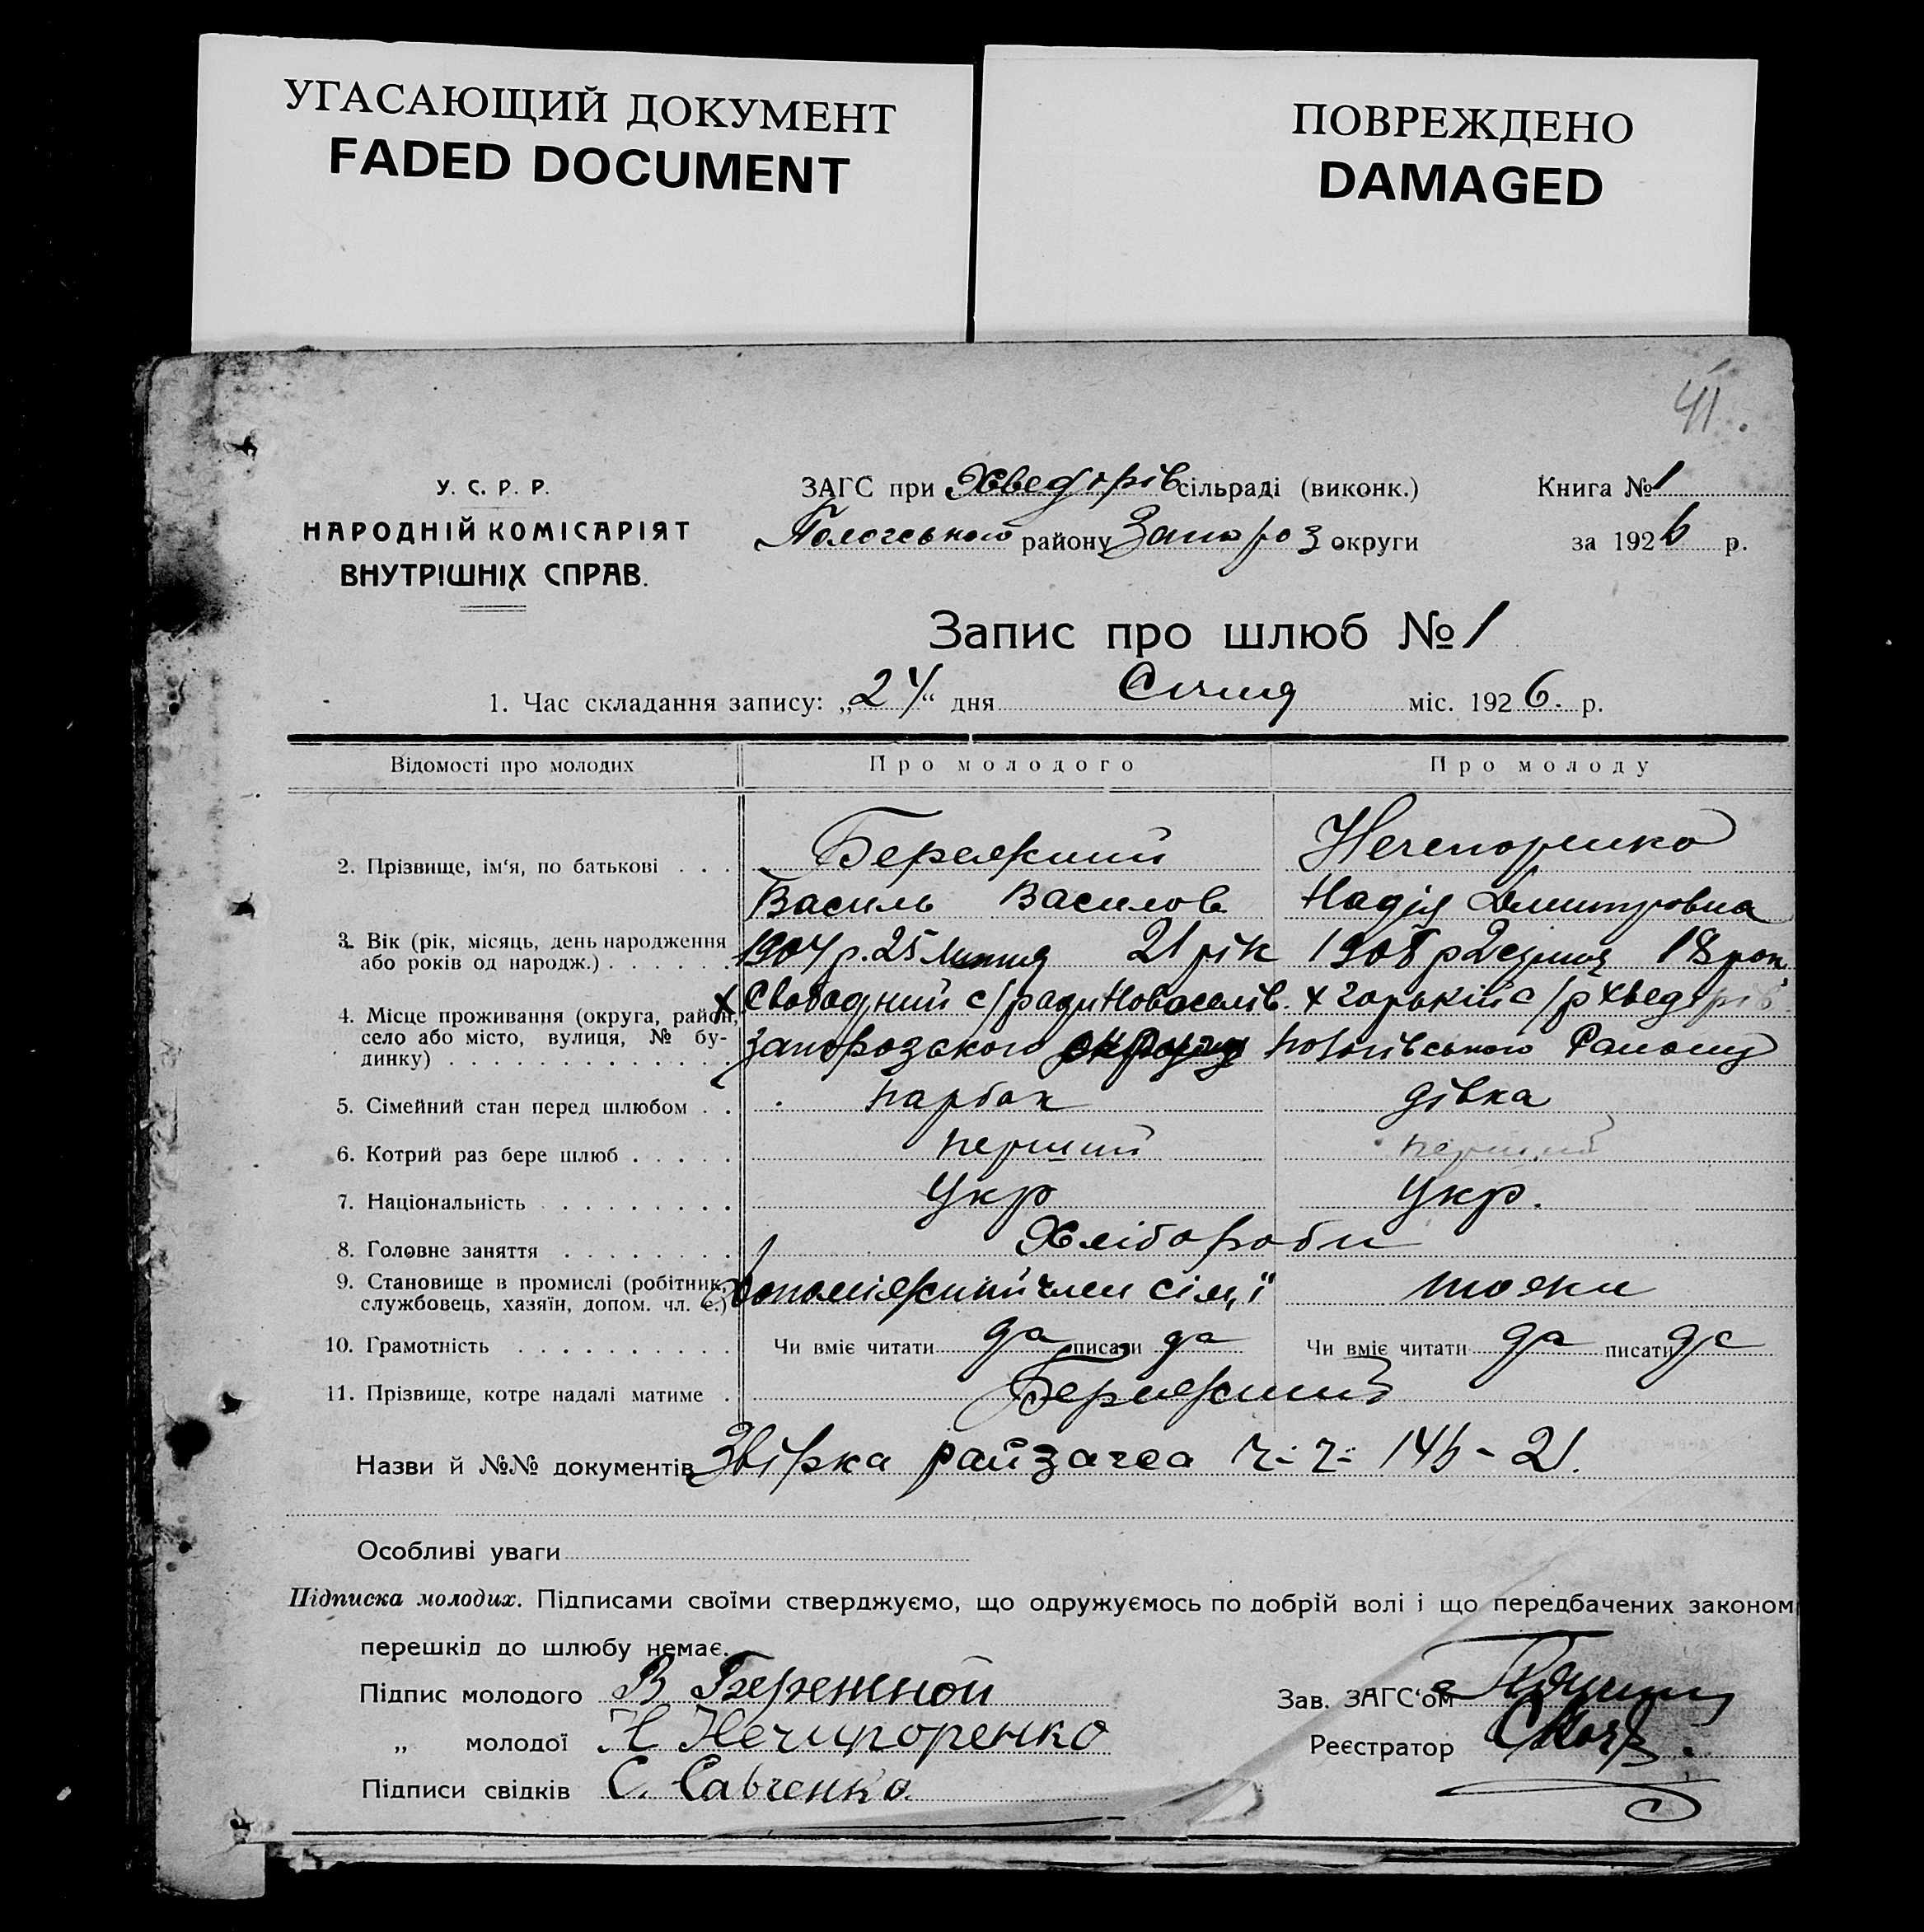 УГАСАЮЩИЙ ДОКУМЕНТ
FADED DOCUMENT
ПОВРЕЖДЕНО
DAMAGED
41
У. С. Р. Р.
НАРОДНІЙ КОМІСАРІЯТ
ВНУТРІШНІХ СПРАВ.
ЗАГС при Хведорів сільраді (виконк.)
Пологського району Запороз округи
Книга № 1
за 1926 р.
Запис про шлюб № 1
1. Час складання запису: „24“ дня Січня міс. 1926. р.
Відомості про молодих Про молодого Про молоду
2. Прізвище, ім'я, по батькові . . . Бережний Нечепоренко
Василь Василов Надія Дмитровна
3. Вік (рік, місяць, день народження
або років од народж.) . . . . . . 1904 р. 25 Липня 21 рік 1908 р 18 рок
4. Місце проживання (округа, район,
село або місто, вулиця, № бу-
динку) . . . . . . . . . . . .
х Свободний с/ради Новоселів. х Горький с/р Хведорів
Запорозького округу Пологівського Району
5. Сімейний стан перед шлюбом . . парбок дівка
6. Котрий раз бере шлюб . . . . . перший перший
7. Національність . . . . . . . . Укр Укр.
8. Головне заняття . . . . . . . Хлібороби
9. Становище в промислі (робітник,
службовець, хазяїн, допом. чл. с.) допоміжний член сім'ї тоже
10. Грамотність . . . . . . . . . . Чи вміє читати да писати да Чи вміє читати да писати да
11. Прізвище, котре надалі матиме . Бережний
Назви й №№ документів Звірка райзагса 146 - 21.
Особливі уваги
Підписка молодих. Підписами своїми стверджуємо, що одружуємось по добрій волі і що передбачених законом
перешкід до шлюбу немає.
Підпис молодого В Бережной
Зав. ЗАГС'ом
„ молодої Н Нечипоренко
Реєстратор
Підписи свідків С. Савченко.